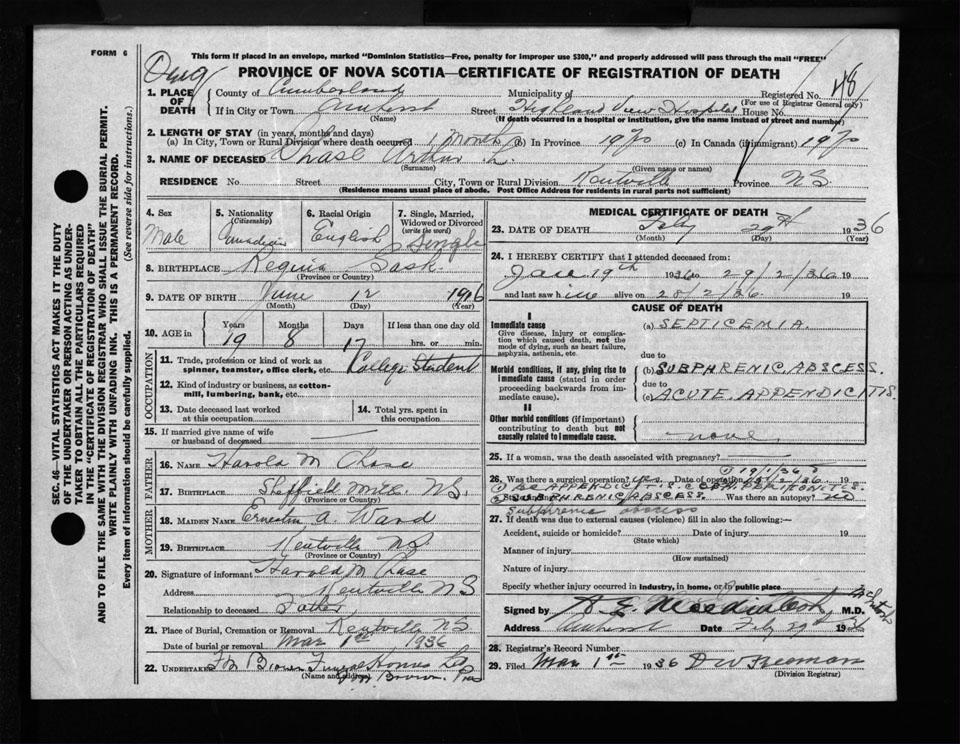 FORM 6
This form if placed in an envelope, marked "Dominion Statistics—Free, penalty for improper use $300," and properly addressed will pass through the mail "FREE"
PROVINCE OF NOVA SCOTIA—CERTIFICATE OF REGISTRATION OF DEATH
1. PLACE OF DEATH
County of Cumberland Municipality of Registered No. 48
(For use of Registrar General only)
If in City or Town Amherst Street Highland View Hospital House No.
(Name) (If death occurred in a hospital or institution, give the name instead of street and number)
2. LENGTH OF STAY (in years, months and days)
(a) In City, Town or Rural Division where death occurred 1 Month (b) In Province (c) In Canada (if immigrant)
3. NAME OF DECEASED Chase Arthur L.
(Surname) (Given name or names)
RESIDENCE No. Street City, Town or Rural Division Kentville Province N.S.
(Residence means usual place of abode. Post Office Address for residents in rural parts not sufficient)
4. Sex Male
5. Nationality (Citizenship) Canadian
6. Racial Origin English
7. Single, Married, Widowed or Divorced (write the word) Single
8. BIRTHPLACE Regina Sask.
(Province or Country)
9. DATE OF BIRTH June 12 1916
(Month) (Day) (Year)
10. AGE in Years Months Days If less than one day old
19 8 17 hrs. or min.
OCCUPATION
11. Trade, profession or kind of work as spinner, teamster, office clerk, etc. College Student
12. Kind of industry or business, as cotton-mill, lumbering, bank, etc.
13. Date deceased last worked at this occupation
14. Total yrs. spent in this occupation
15. If married give name of wife or husband of deceased
FATHER
16. NAME Harold M Chase
17. BIRTHPLACE Sheffield Mill N.S.
(Province or Country)
MOTHER
18. MAIDEN NAME A. Ward
19. BIRTHPLACE Kentville NS
(Province or Country)
20. Signature of informant Harold M Chase
Address Kentville NS
Relationship to deceased Father
21. Place of Burial, Cremation or Removal Kentville NS
Date of burial or removal Mar 1st 1936
22. UNDERTAKER Funeral Home
(Name and address) Brown
MEDICAL CERTIFICATE OF DEATH
23. DATE OF DEATH Feby 29th 1936
(Month) (Day) (Year)
24. I HEREBY CERTIFY that I attended deceased from:
Jan 19th 1936 to 29/2/36 19
and last saw him alive on 28/2/36 19
CAUSE OF DEATH
I
Immediate cause (a) SEPTICEMIA.
Give disease, injury or complication which caused death, not the mode of dying, such as heart failure, asphyxia, asthenia, etc.
due to
Morbid conditions, if any, giving rise to immediate cause (stated in order proceeding backwards from immediate cause).
(b) SUBPHRENIC ABSCESS.
due to
(c) ACUTE APPENDICITIS.
II
Other morbid conditions (if important) contributing to death but not causally related to immediate cause.
none.
25. If a woman, was the death associated with pregnancy?
① 19/1/36
26. Was there a surgical operation? Yes. Date of operation
② SUBPHRENIC ABSCESS. Was there an autopsy? no
Subphrenic abscess
27. If death was due to external causes (violence) fill in also the following:—
Accident, suicide or homicide? Date of injury 19
(State which)
Manner of injury
(How sustained)
Nature of injury
Specify whether injury occurred in industry, in home, or in public place
Signed by M.D.
Address Amherst Date Feby 29th 1936
28. Registrar's Record Number
29. Filed Mar 1st 1936 D W Freeman
(Division Registrar)
SEC. 46—VITAL STATISTICS ACT MAKES IT THE DUTY
OF THE UNDERTAKER OR PERSON ACTING AS UNDER-
TAKER TO OBTAIN ALL THE PARTICULARS REQUIRED
IN THE "CERTIFICATE OF REGISTRATION OF DEATH"
AND TO FILE THE SAME WITH THE DIVISION REGISTRAR WHO SHALL ISSUE THE BURIAL PERMIT.
WRITE PLAINLY WITH UNFADING INK. THIS IS A PERMANENT RECORD.
Every item of information should be carefully supplied. (See reverse side for instructions.)